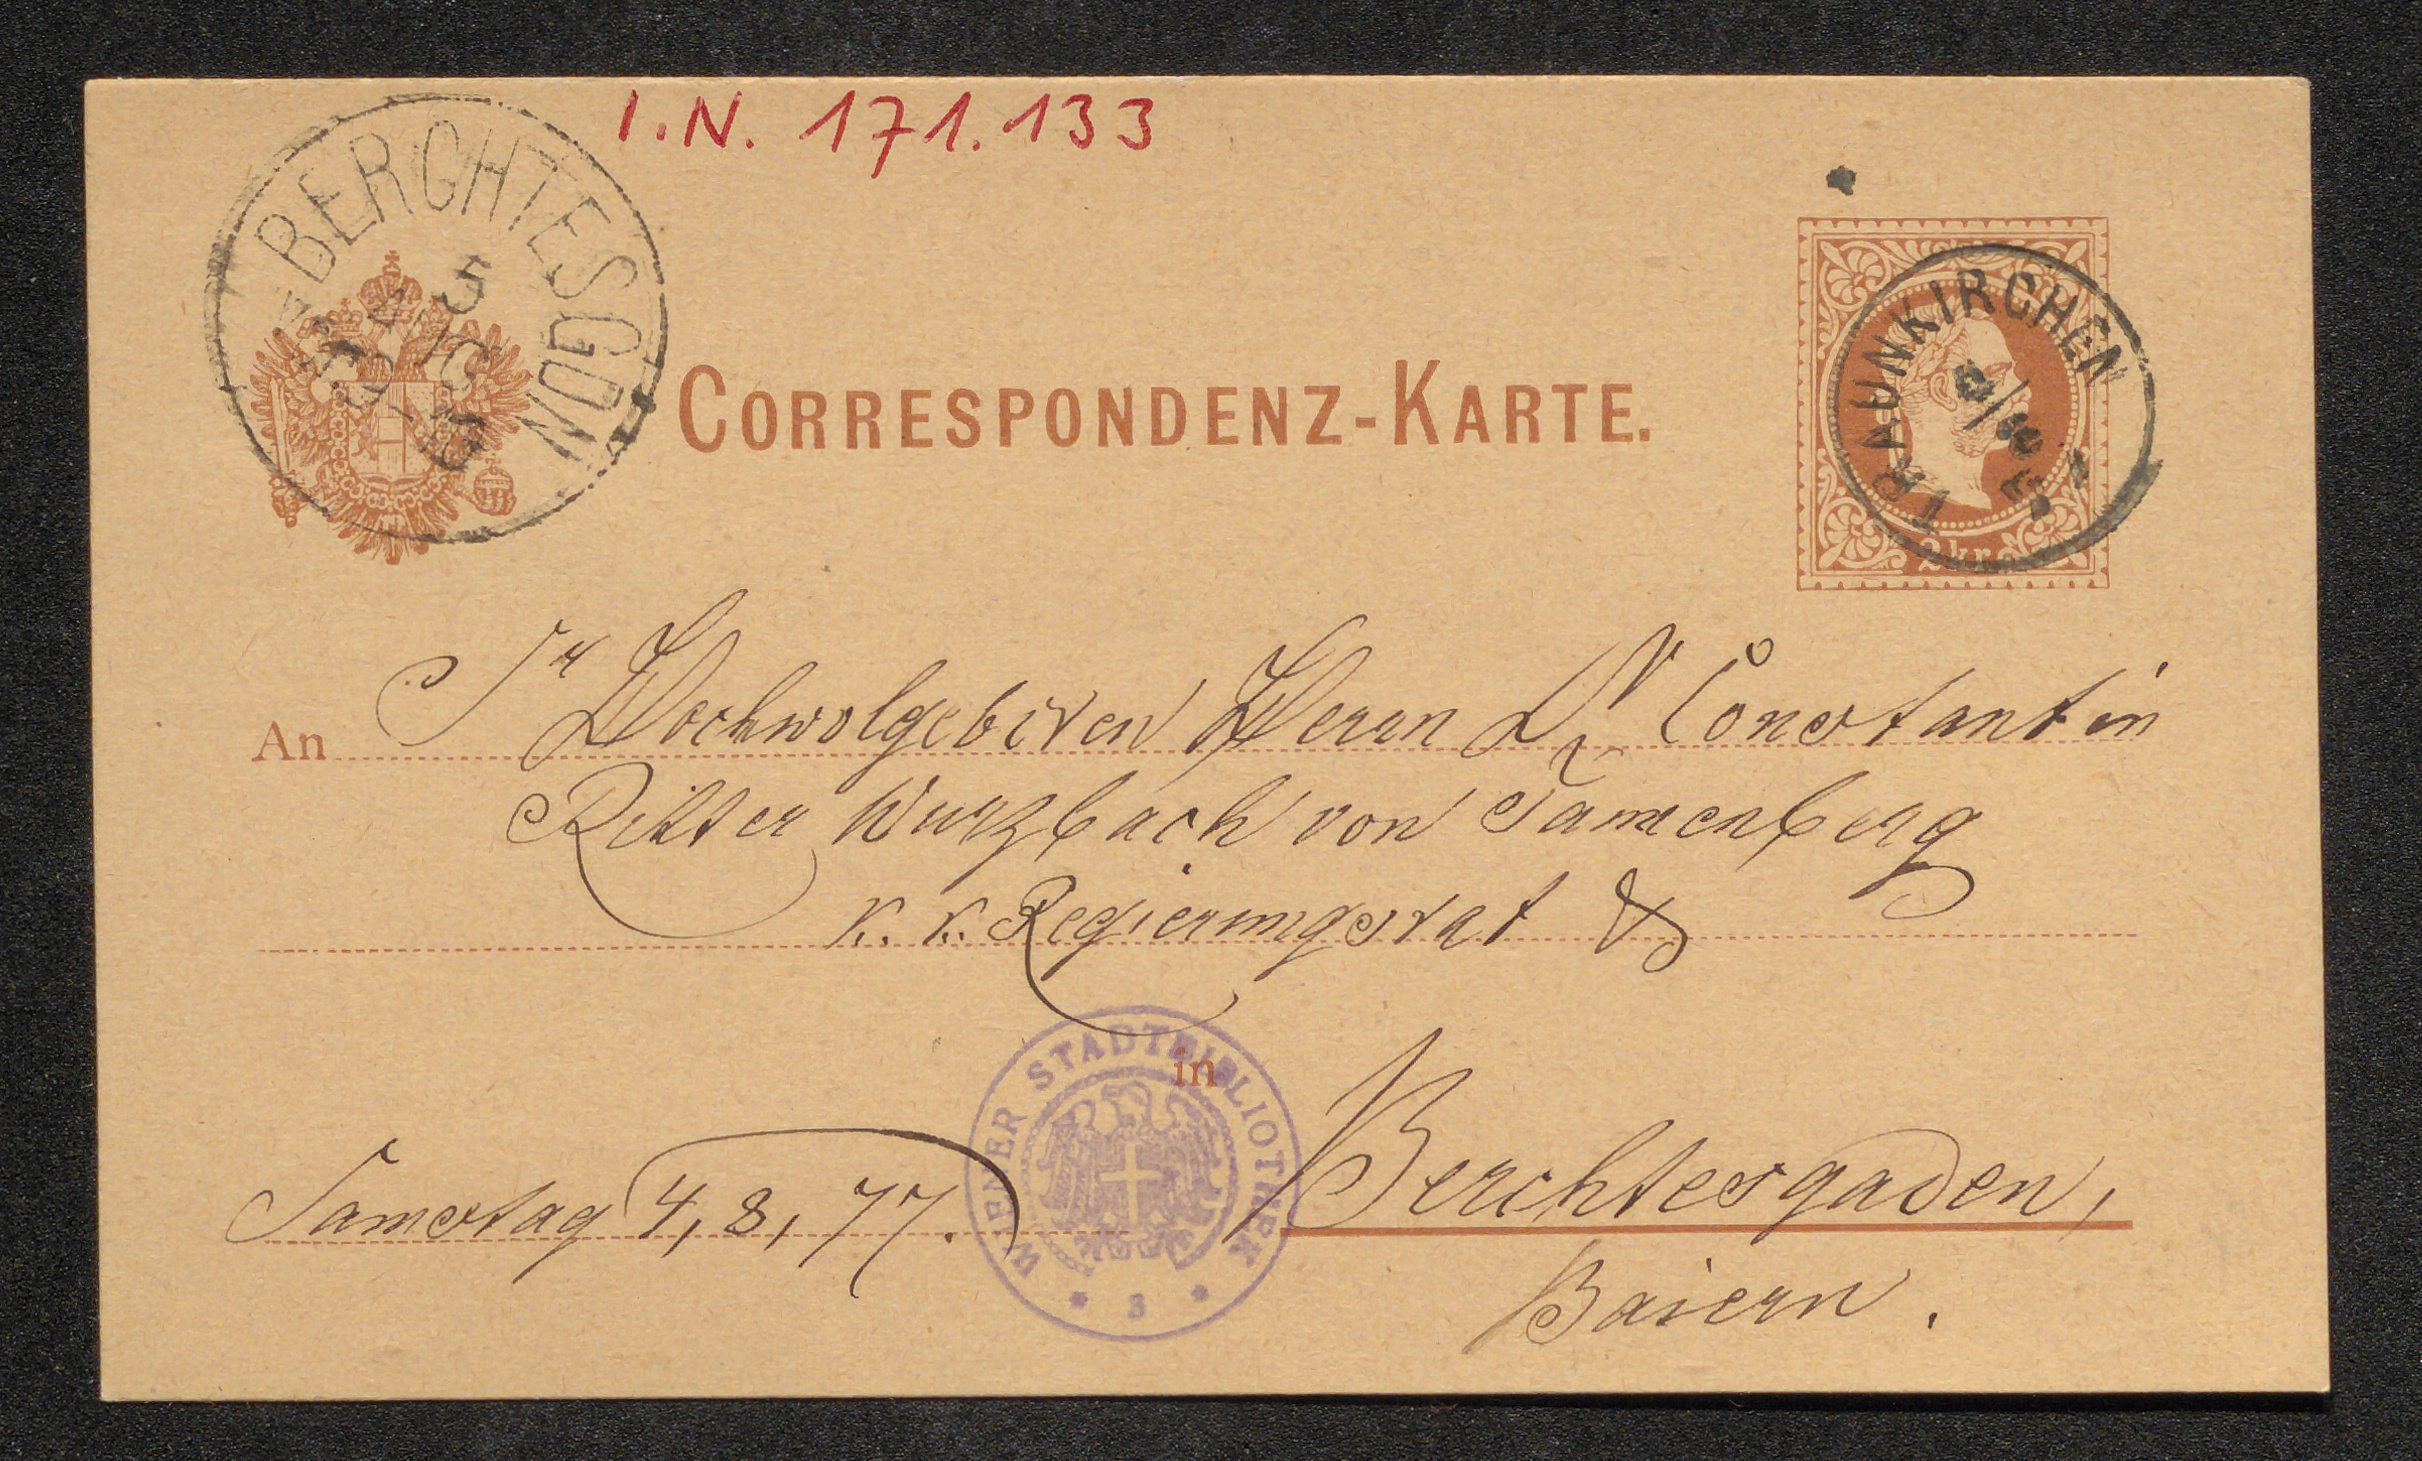 I.N. 171.133
BERCHTESGDN
5
CORRESPONDENZ-KARTE.
TRAUNKIRCHEN
2 kr.
Sr Hochwolgeboren Herrn Dr. Constantin
An
Ritter Wurzbach von Tannenberg
k. k. Regierungsrat &
in
WIENER STADTBIBLIOTHEK
* 3 *
Samstag 4, 8, 77.
Berchtesgaden,
Baiern.